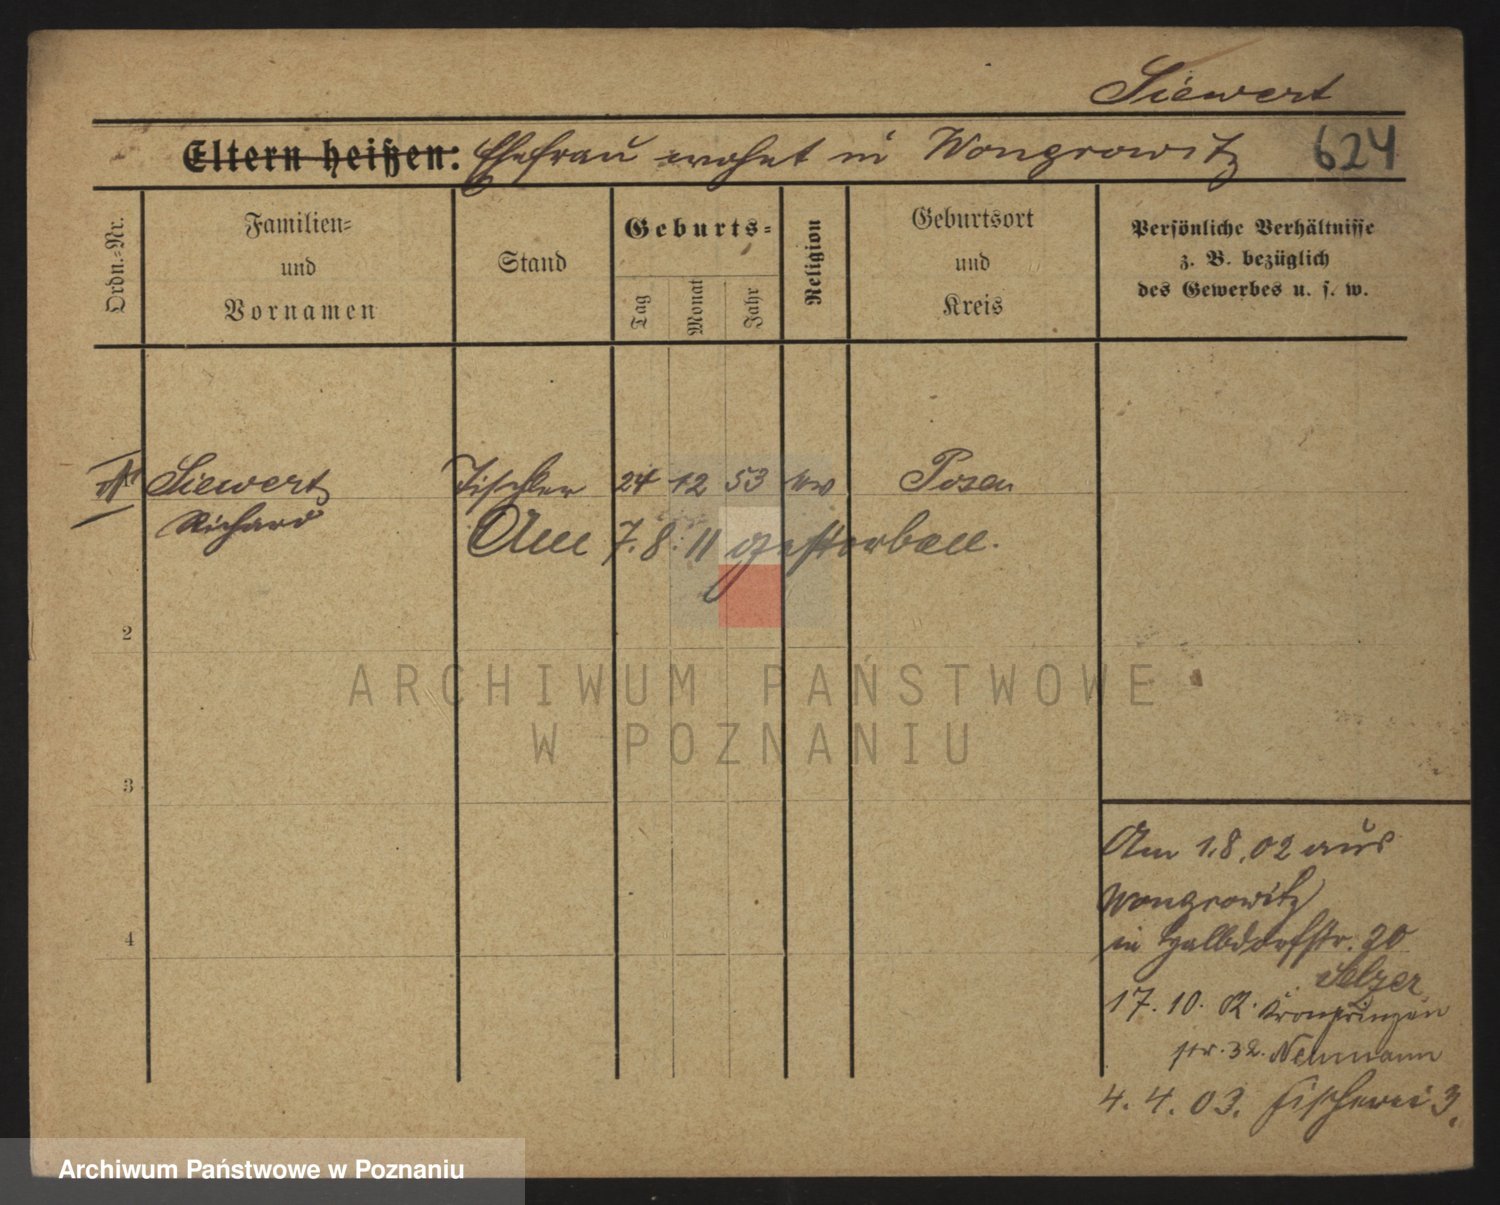 Siewert
Eltern heißen: Ehefrau wohnt in Wongrowitz 624
Ordn.-Nr.
Familien-
und
Vornamen
Stand
Geburts-
Tag
Monat
Jahr
Religion
Geburtsort
und
Kreis
Persönliche Verhältnisse
z. B. bezüglich
des Gewerbes u. s. w.
1
Siewert Tischler 24 12 53 ev Posen
Richard
Am 7.8.11 gestorben.
2
ARCHIWUM PAŃSTWOWE
W POZNANIU
3
4
Am 1.8.02 aus
Wongrowitz
in Halbdorfstr. 20
Selzer
17. 10. 02. Kronprinzen
str. 32. Neumann
4. 4. 03. Fischerei 3.
Archiwum Państwowe w Poznaniu